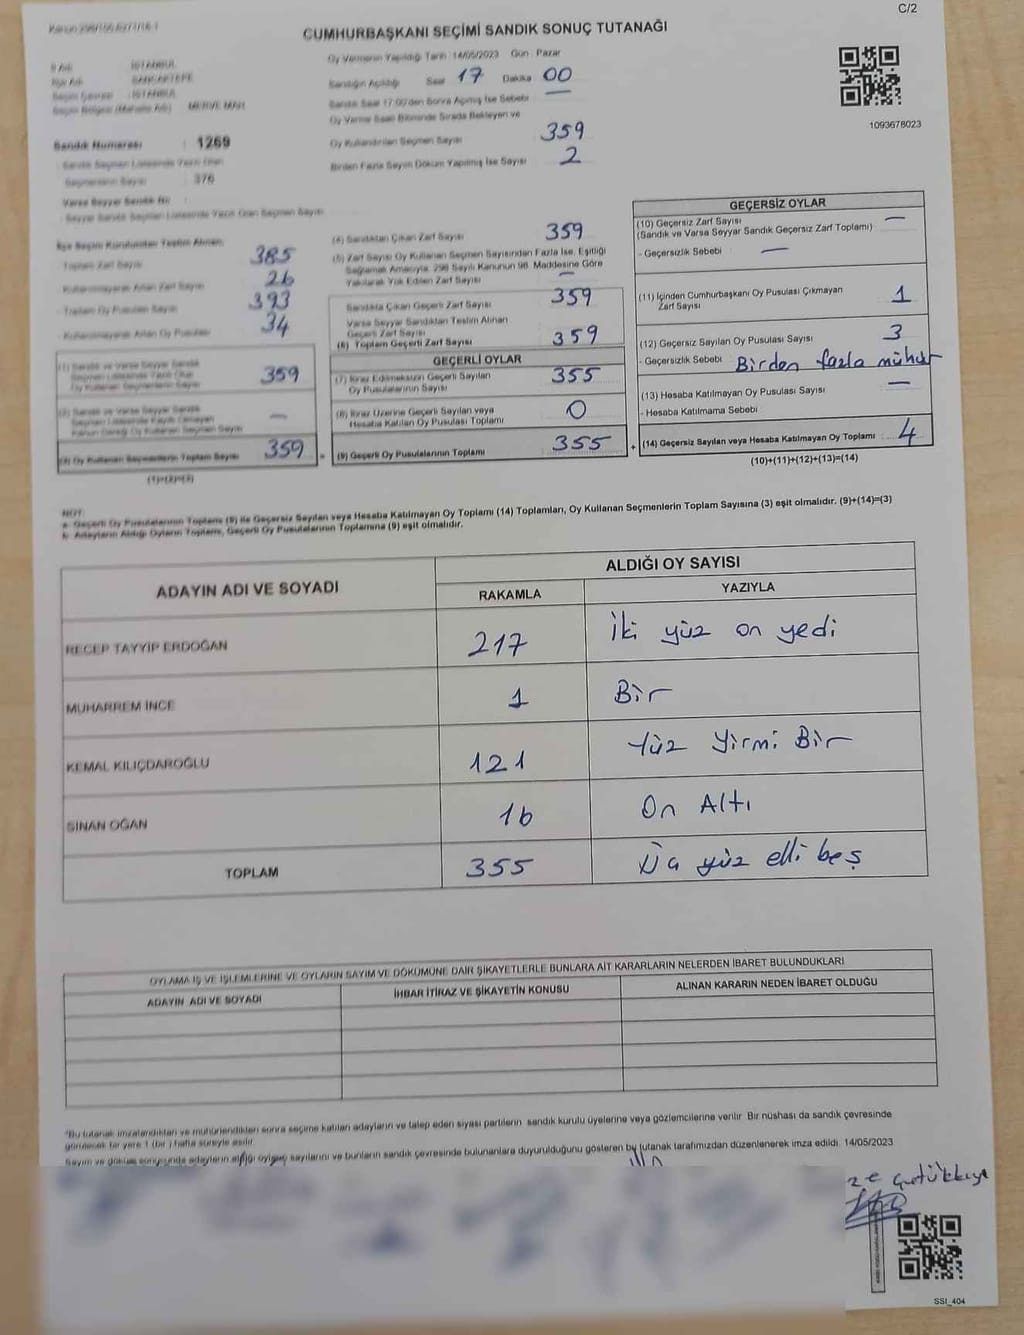 Kanun 298/105,6271/16-1
C/2
CUMHURBAŞKANI SEÇİMİ SANDIK SONUÇ TUTANAĞI
İli Adı : İSTANBUL
İlçe Adı : SANCAKTEPE
Seçim Çevresi : İSTANBUL
Seçim Bölgesi (Mahalle Adı) : MERVE MAH.
Sandık Numarası : 1269
Sandık Seçmen Listesinde Yazılı Olan
Seçmenlerin Sayısı : 376
Varsa Seyyar Sandık No :
Seyyar Sandık Seçmen Listesinde Yazılı Olan Seçmen Sayısı
Oy Vermenin Yapıldığı Tarih 14/05/2023 Gün Pazar
Sandığın Açıldığı Saat 17 Dakika 00
Sandık Saat 17.00'den Sonra Açılmış İse Sebebi —
Oy Verme Saati Bitiminde Sırada Bekleyen ve
Oy Kullandırılan Seçmen Sayısı 359
Birden Fazla Sayım Döküm Yapılmış İse Sayısı 2
1093678023
İlçe Seçim Kurulundan Teslim Alınan;
- Toplam Zarf Sayısı 385
- Kullanılmayarak Artan Zarf Sayısı 26
- Toplam Oy Pusulası Sayısı 393
- Kullanılmayarak Artan Oy Pusulası 34
(1) Sandık ve Varsa Seyyar Sandık
Seçmen Listesinde Yazılı Olup
Oy Kullanan Seçmenlerin Sayısı 359
(2) Sandık ve Varsa Seyyar Sandık
Seçmen Listesinde Kayıtlı Olmayan
Kanun Gereği Oy Kullanan Seçmen Sayısı —
(3) Oy Kullanan Seçmenlerin Toplam Sayısı 359
(1)+(2)=(3)
(4) Sandıktan Çıkan Zarf Sayısı 359
(5) Zarf Sayısı Oy Kullanan Seçmen Sayısından Fazla İse, Eşitliği
Sağlamak Amacıyla, 298 Sayılı Kanunun 98. Maddesine Göre
Yakılarak Yok Edilen Zarf Sayısı —
Sandıkta Çıkan Geçerli Zarf Sayısı 359
Varsa Seyyar Sandıktan Teslim Alınan
Geçerli Zarf Sayısı
(6) Toplam Geçerli Zarf Sayısı 359
GEÇERLİ OYLAR
(7) İtiraz Edilmeksizin Geçerli Sayılan
Oy Pusulalarının Sayısı 355
(8) İtiraz Üzerine Geçerli Sayılan veya
Hesaba Katılan Oy Pusulası Toplamı 0
= (9) Geçerli Oy Pusulalarının Toplamı 355
GEÇERSİZ OYLAR
(10) Geçersiz Zarf Sayısı —
(Sandık ve Varsa Seyyar Sandık Geçersiz Zarf Toplamı)
- Geçersizlik Sebebi —
(11) İçinden Cumhurbaşkanı Oy Pusulası Çıkmayan
Zarf Sayısı 1
(12) Geçersiz Sayılan Oy Pusulası Sayısı 3
- Geçersizlik Sebebi Birden fazla mühür
(13) Hesaba Katılmayan Oy Pusulası Sayısı —
- Hesaba Katılmama Sebebi
+ (14) Geçersiz Sayılan veya Hesaba Katılmayan Oy Toplamı 4
(10)+(11)+(12)+(13)=(14)
NOT:
a- Geçerli Oy Pusulalarının Toplamı (9) ile Geçersiz Sayılan veya Hesaba Katılmayan Oy Toplamı (14) Toplamları, Oy Kullanan Seçmenlerin Toplam Sayısına (3) eşit olmalıdır. (9)+(14)=(3)
b- Adayların Aldığı Oyların Toplamı, Geçerli Oy Pusulalarının Toplamına (9) eşit olmalıdır.
ADAYIN ADI VE SOYADI
ALDIĞI OY SAYISI
RAKAMLA YAZIYLA
RECEP TAYYİP ERDOĞAN 217 İki yüz on yedi
MUHARREM İNCE 1 Bir
KEMAL KILIÇDAROĞLU 121 Yüz Yirmi Bir
SİNAN OĞAN 16 On Altı
TOPLAM 355 yüz elli beş
OYLAMA İŞ VE İŞLEMLERİNE VE OYLARIN SAYIM VE DÖKÜMÜNE DAİR ŞİKAYETLERLE BUNLARA AİT KARARLARIN NELERDEN İBARET BULUNDUKLARI
ADAYIN ADI VE SOYADI İHBAR İTİRAZ VE ŞİKAYETİN KONUSU ALINAN KARARIN NEDEN İBARET OLDUĞU
*Bu tutanak imzalandıktan ve mühürlendikten sonra seçime katılan adayların ve talep eden siyasi partilerin sandık kurulu üyelerine veya gözlemcilerine verilir. Bir nüshası da sandık çevresinde
görülecek bir yere 1 (bir) hafta süreyle asılır.
Sayım ve döküm sonucunda adayların aldığı oyların sayılarını ve bunların sandık çevresinde bulunanlara duyurulduğunu gösteren bu tutanak tarafımızdan düzenlenerek imza edildi. 14/05/2023
SSI_404